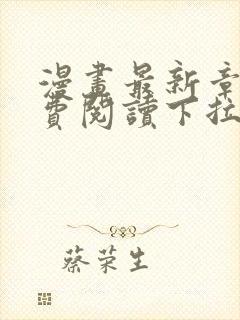 漫畫最新章
費閱讀下拉
蔡荣生